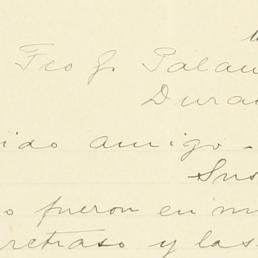 Teo G. Palau
Dura
ido amigo -
Sus
o fueron en m
retraso y las